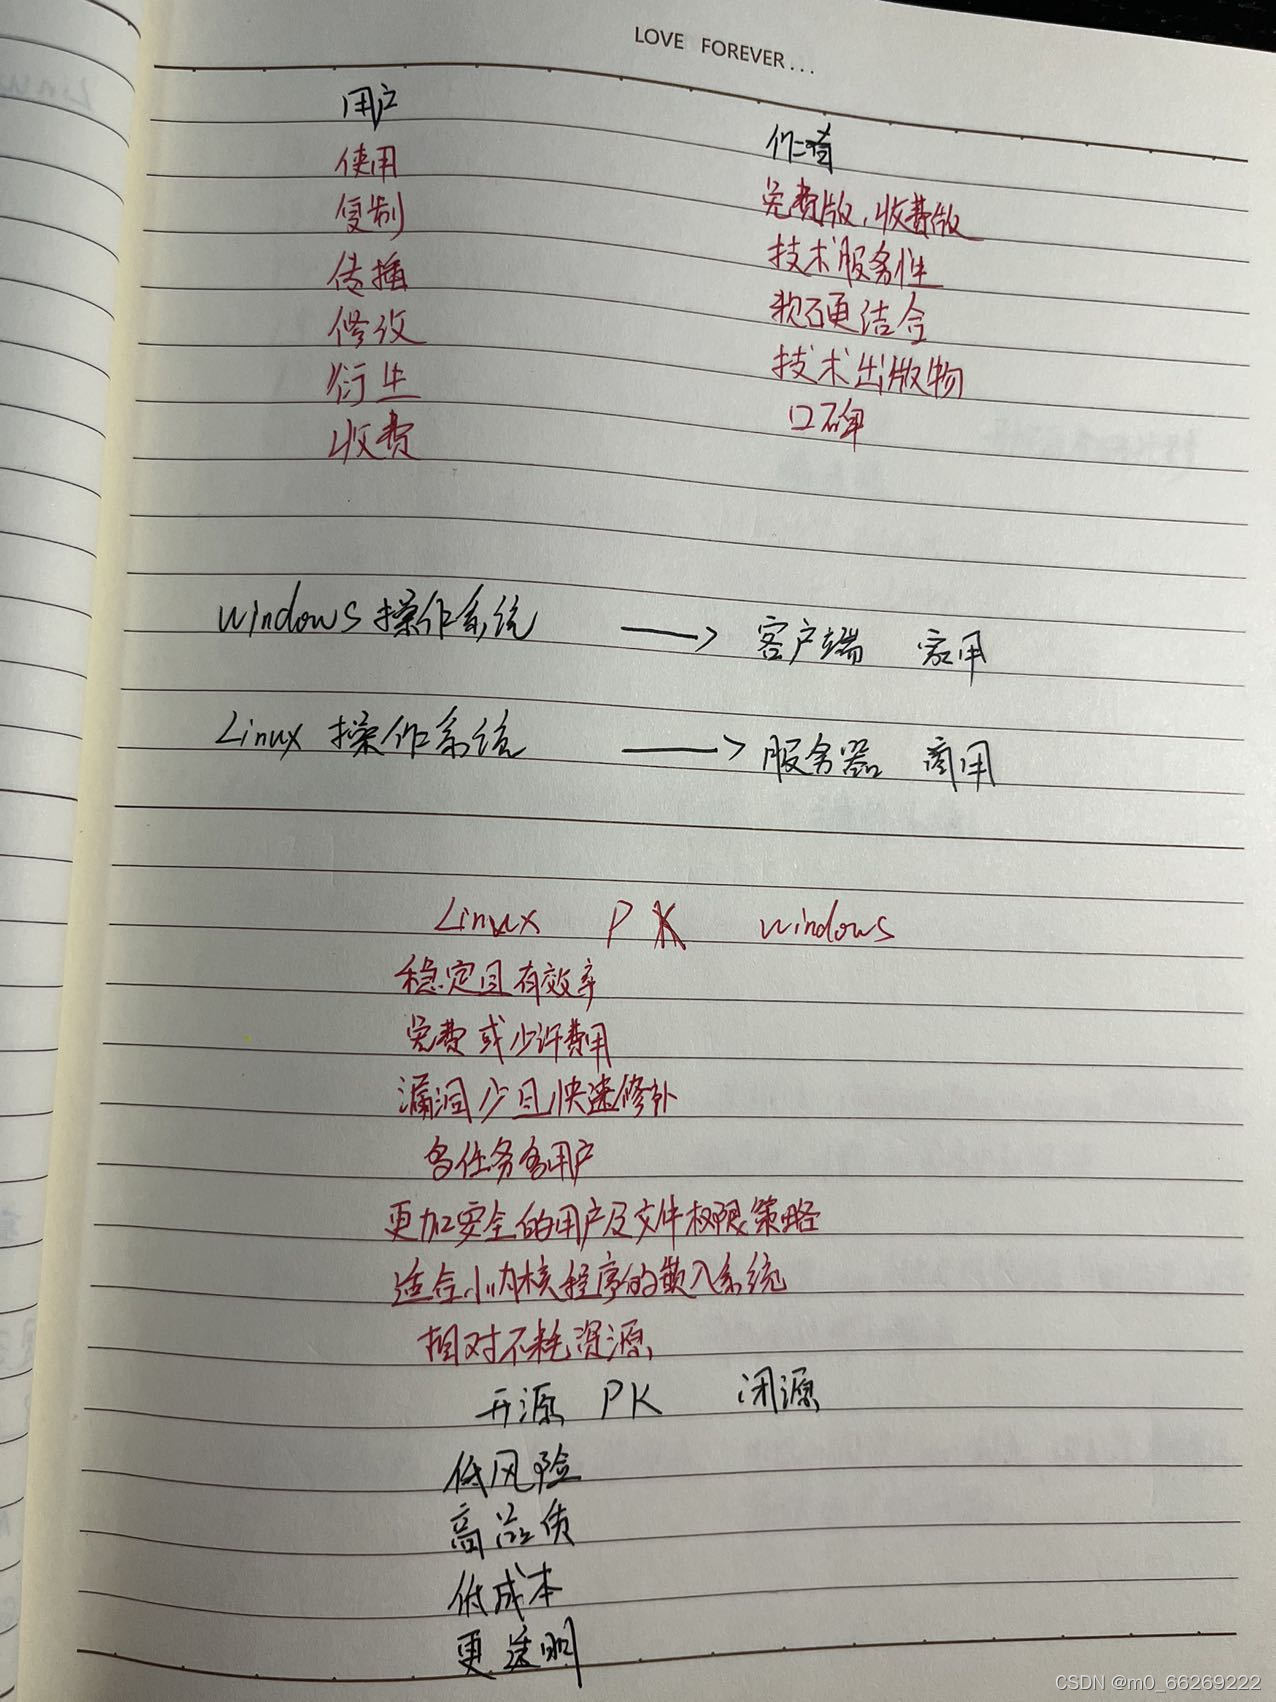 LOVE FOREVER...
用户 作者
使用 免费版,收费版
复制 技术服务性
传播 软硬结合
修改 技术出版物
衍生 口碑
收费
windows操作系统 → 客户端 家用
Linux 操作系统 → 服务器 商用
Linux PK windows
稳定且有效率
免费或少许费用
漏洞少且快速修补
多任务多用户
更加安全的用户及文件权限策略
适合小内核程序的嵌入系统
相对不耗资源
开源 PK 闭源
低风险
高品质
低成本
更透明
CSDN @m0_66269222